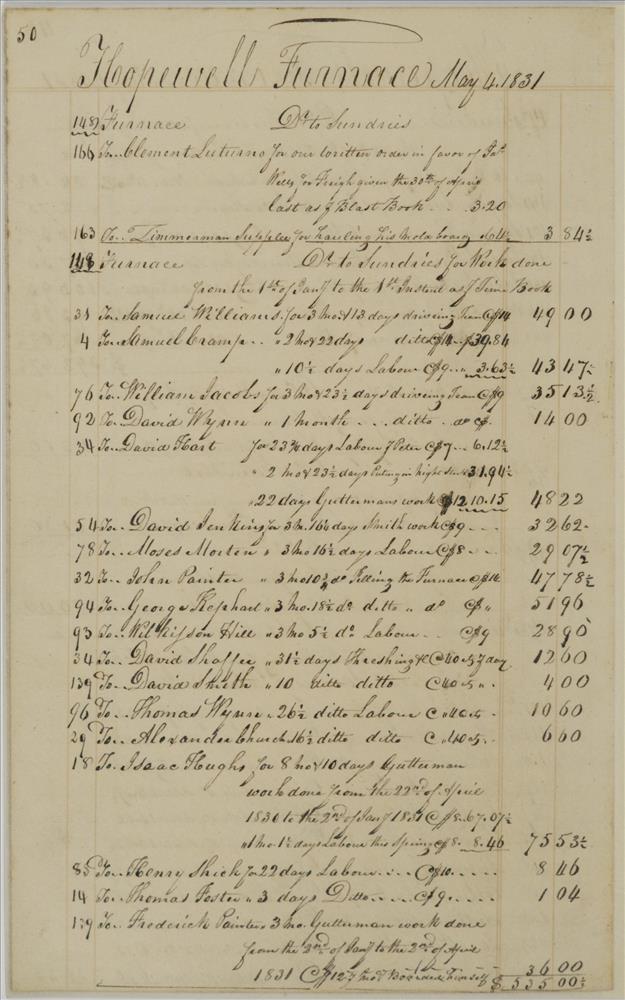 50
Hopewell Furnace May 4. 1831
148 Furnace Dr. to Sundries
166 To.. Clement for our written order in favor of
Wells for given the 30th of April
last as Blast Book ... 3.20
163 To.. Timmerman Supplee for hauling his mold boards 64½ 3 84½
148 Furnace Dr. to Sundries for Work done
from the 1st of Jany to the 1st Instant as Time Book
31 To.. Samuel Williams for 3 mo. & 13 days driveing Team @ $14 49 00
4 To.. Samuel Cramp .. " 2 mo & 22 days ditto @ $14 .. $39.84
" 10½ days Labour @ $9 .. " 3.63½ 43 47½
76 To.. William Jacobs for 3 mo & 23½ days driveing Team @ $9 35 13½
92 To.. David Wynn " 1 month ... ditto .. do @ $ 14 00
34 To.. David Hart for 23¾ days Labour Peter @ $7 ... 6.12½
" 2 mo & 23½ days in night 31.94½
" 22 days Guttermans work @ $12 10.15 48 22
54 To.. David Jenkins for 3 mo. 16½ days Smith work @ $9 ... 32 62
78 To.. Moses Morten " 3 mo 16½ days Labour @ $8 ... 29 07½
32 To.. John Painter " 3 mo 10¾ do Filling the Furnace @ $14 47 78½
94 To.. George Kephart " 3 mo. 18½ do ditto " do @ $ " 51 96
93 To.. Hill " 3 mo 5½ do Labour .. @ $9 28 90
34 To.. David Shaffer " 31½ days Threshing &c @ 40 cts day 12 60
139 To.. David Smith " 10 ditto ditto @ 40 cts " 4 00
96 To.. Thomas Wynn " 26½ ditto Labour @ " 40 cts 10 60
29 To.. Alexander Church 16½ ditto ditto @ " 40 cts 6 60
18 To.. Isaac Hughs for 8 mo & 10 days Gutterman
work done from the 22nd of April
1830 to the 2nd of Jany 1831 @ $8. 67.07½
" 1 mo. 1½ days Labour this Spring @ $8. 8.46 75 53½
85 To.. Henry Shick for 22 days Labour ... @ $10 .... 8 46
14 To.. Thomas Foster " 3 days Ditto .... @ $9 .... 1 04
139 To.. Frederick Painter " 3 mo. Gutterman work done
from the 2nd of Jany to the 2nd of April
1831 @ $12 mo. Boarded himself 36 00
$ 535 00½